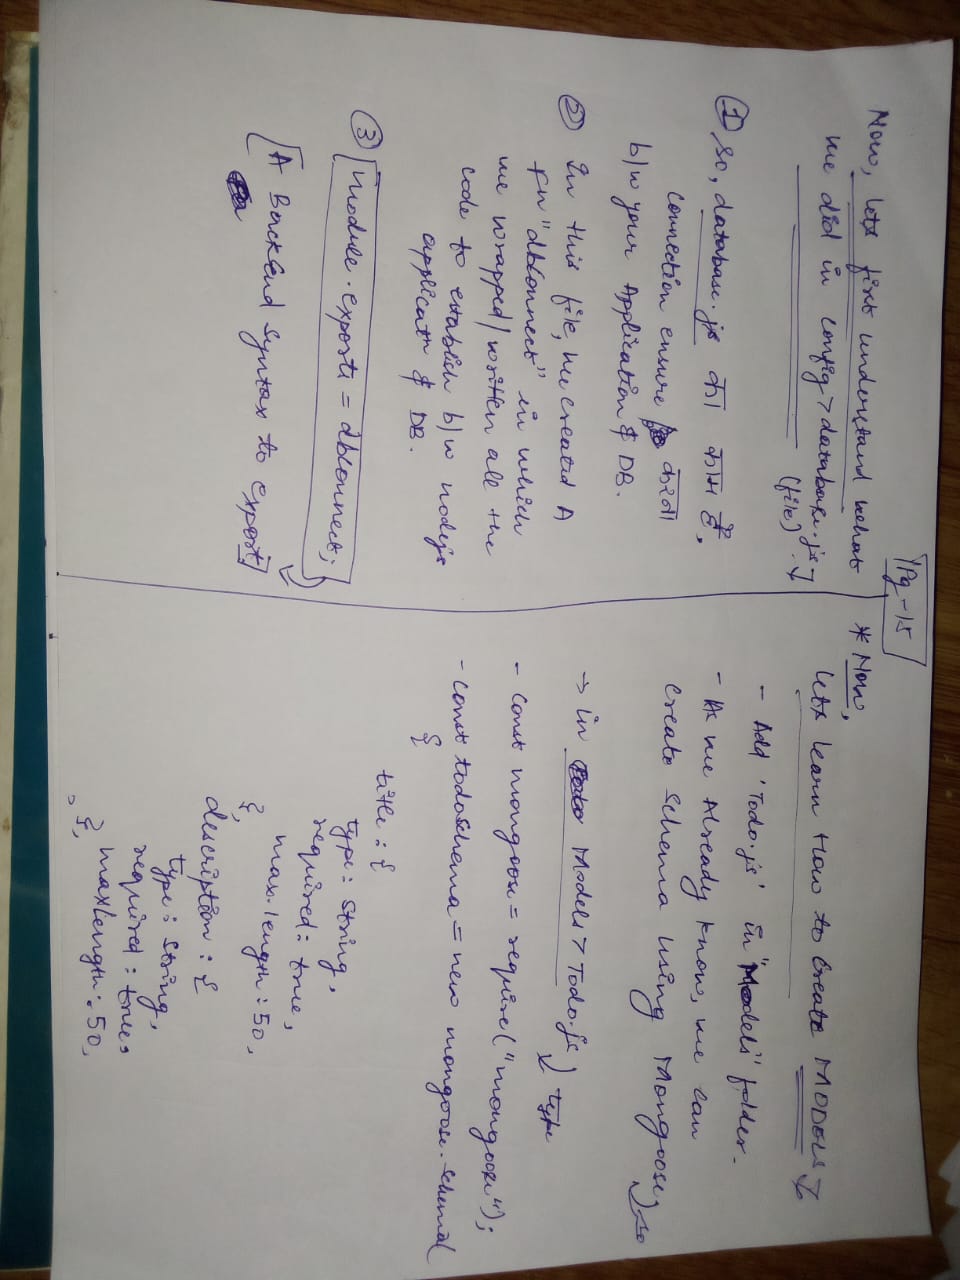 Pg-15
Now, lets first understand what
we did in config > database.js
(file)
① So, database.js का काम है,
connection ensure करना
b/w your Application & DB.
② In this file, we created A
fn "dbConnect" in which
we wrapped/written all the
code to establish b/w nodejs
applicatn & DB.
③ module.exports = dbConnect;
[A BackEnd Syntax to export]
* Now,
lets learn How to Create MODELS
- Add 'Todo.js' in "Models" folder.
- As we Already know, we can
create Schema Using Mongoose
→ in Models > Todo.js
type
- const mongoose = require("mongoose");
- const todoSchema = new mongoose.Schema(
{
title : {
type : String,
required : true,
max.length : 50,
},
description : {
type : String,
required : true,
maxLength : 50,
},